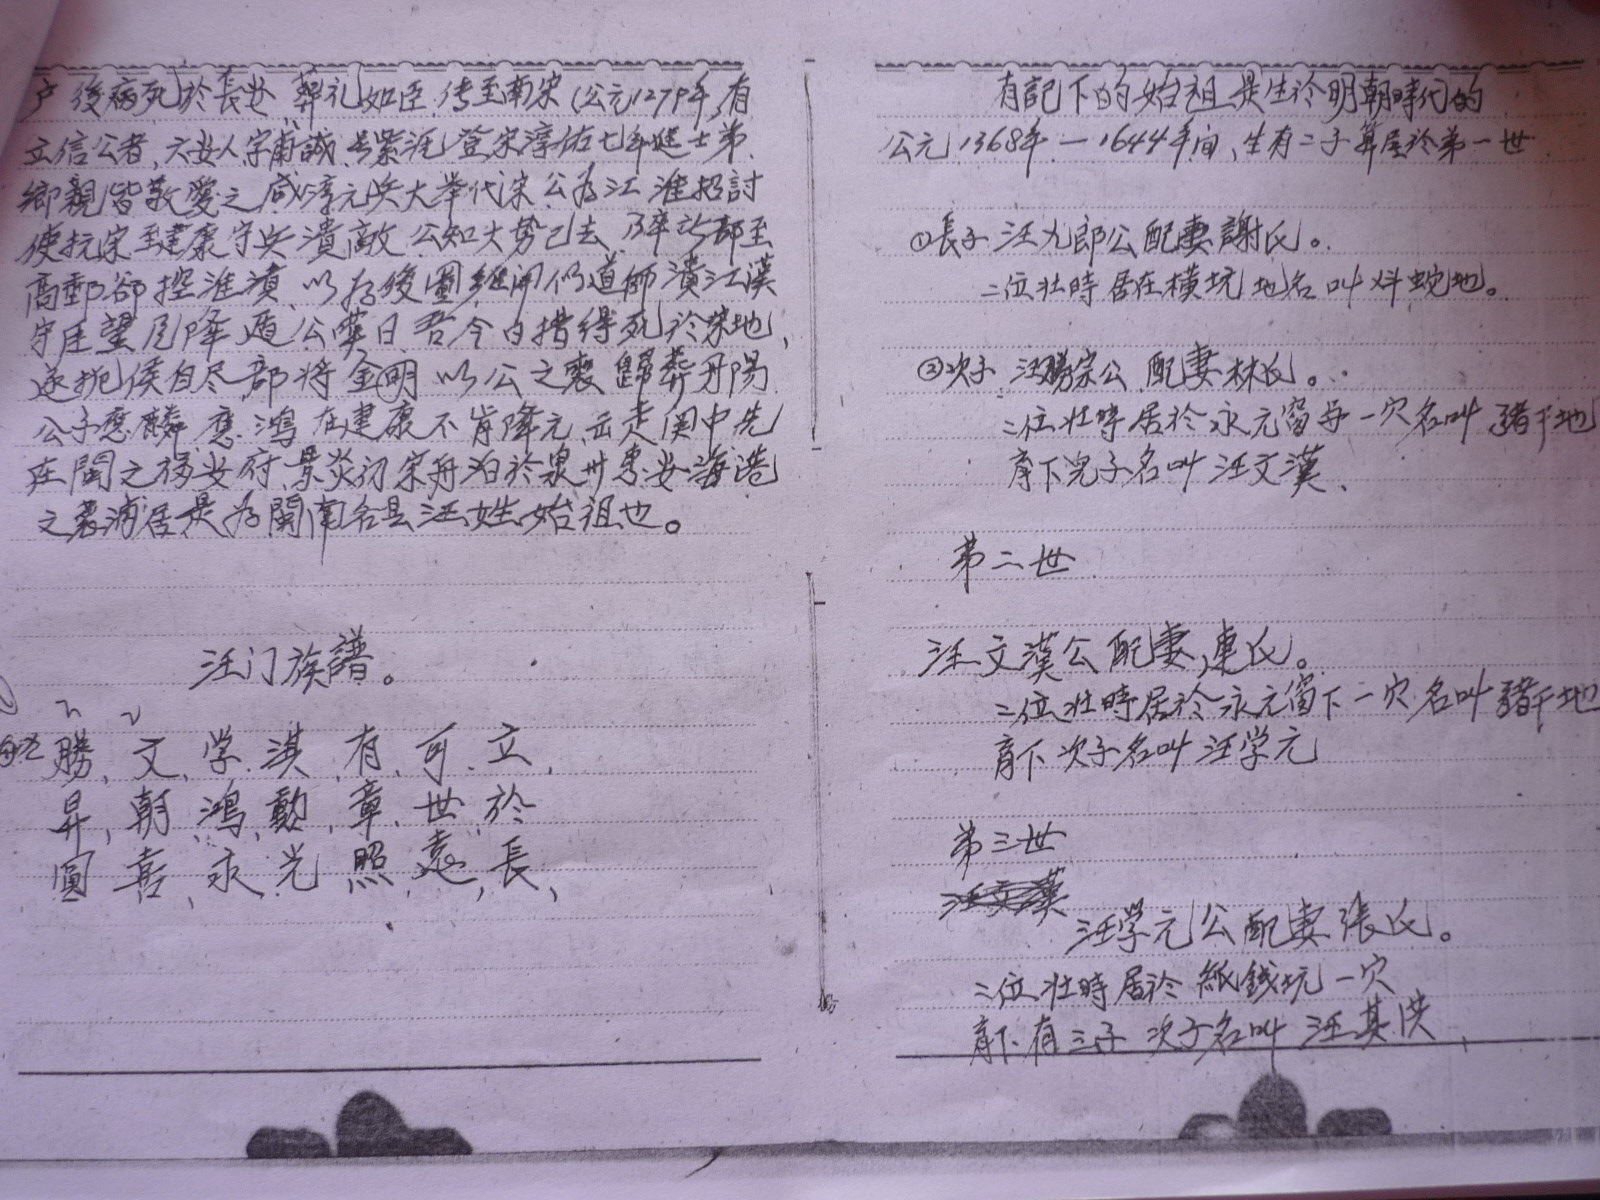 户後病死於長安 葬礼如臣.传至南宋(公元1279年,有
立信公者、六安人字甫誠、号紫涯 登宋淳佑七年進士第.
鄉親皆敬愛之 咸淳元兵大举代宋 公為江淮招討
使抗宋至建康守兵潰敵 公知大势已去 部至
高郵 控淮漬 以存後圖 師潰江漢
守 望風降 遁 公嘆曰吾今日措得死於宋地,
遂扼侯自尽 部将金明 以公之喪歸葬丹陽
公子應麟 應 鴻 在建康不肯降元 走闽中先
在閩之福安府、景炎初宋舟泊於泉州惠安海港
之 浦居是為閩南各县汪姓始祖也。
汪门族譜。
勝、文、学、淇、有、可、立、
昇、朝、鴻、勳、章、世、於
圓 喜、永、光 照、遠、長、
有記下的始祖是生於明朝時代的
公元1368年—1644年间、生有二子 算居於第一世
①長子 汪九郎公配妻謝氏。
二位壮時居在横坑 地名叫 地。
②次子 汪勝宗公 配妻林氏。
二位壮時居於永元 一穴名叫 豬干地
育下兒子名叫 汪文漢、
第二世
汪文漢公配妻 連氏。
二位壮時居於永元留下一穴名叫豬干地
育下次子名叫 汪学元
第三世
汪文漢
汪学元公配妻張氏。
二位壮時居於紙錢坑一穴
育下有三子 次子名叫 汪其洪